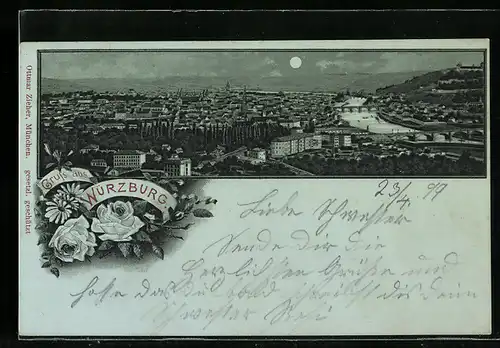 Ottmar Zieher, München. gesetzl. geschützt
Gruß aus
WÜRZBURG.
23/4 97
Liebe Schwester
Sende dir die
Herzlichsten Grüße und
hoffe das du bald schreibst
Schwester